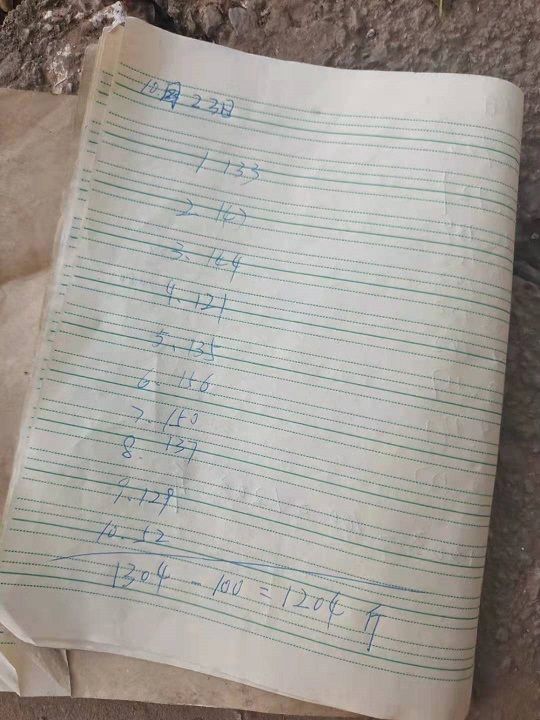 10月23日
1 133
2. 147
3. 144
4. 121
5. 135
6. 156
7. 150
8. 137
9. 129
10. 52
1304 - 100 = 1204 斤